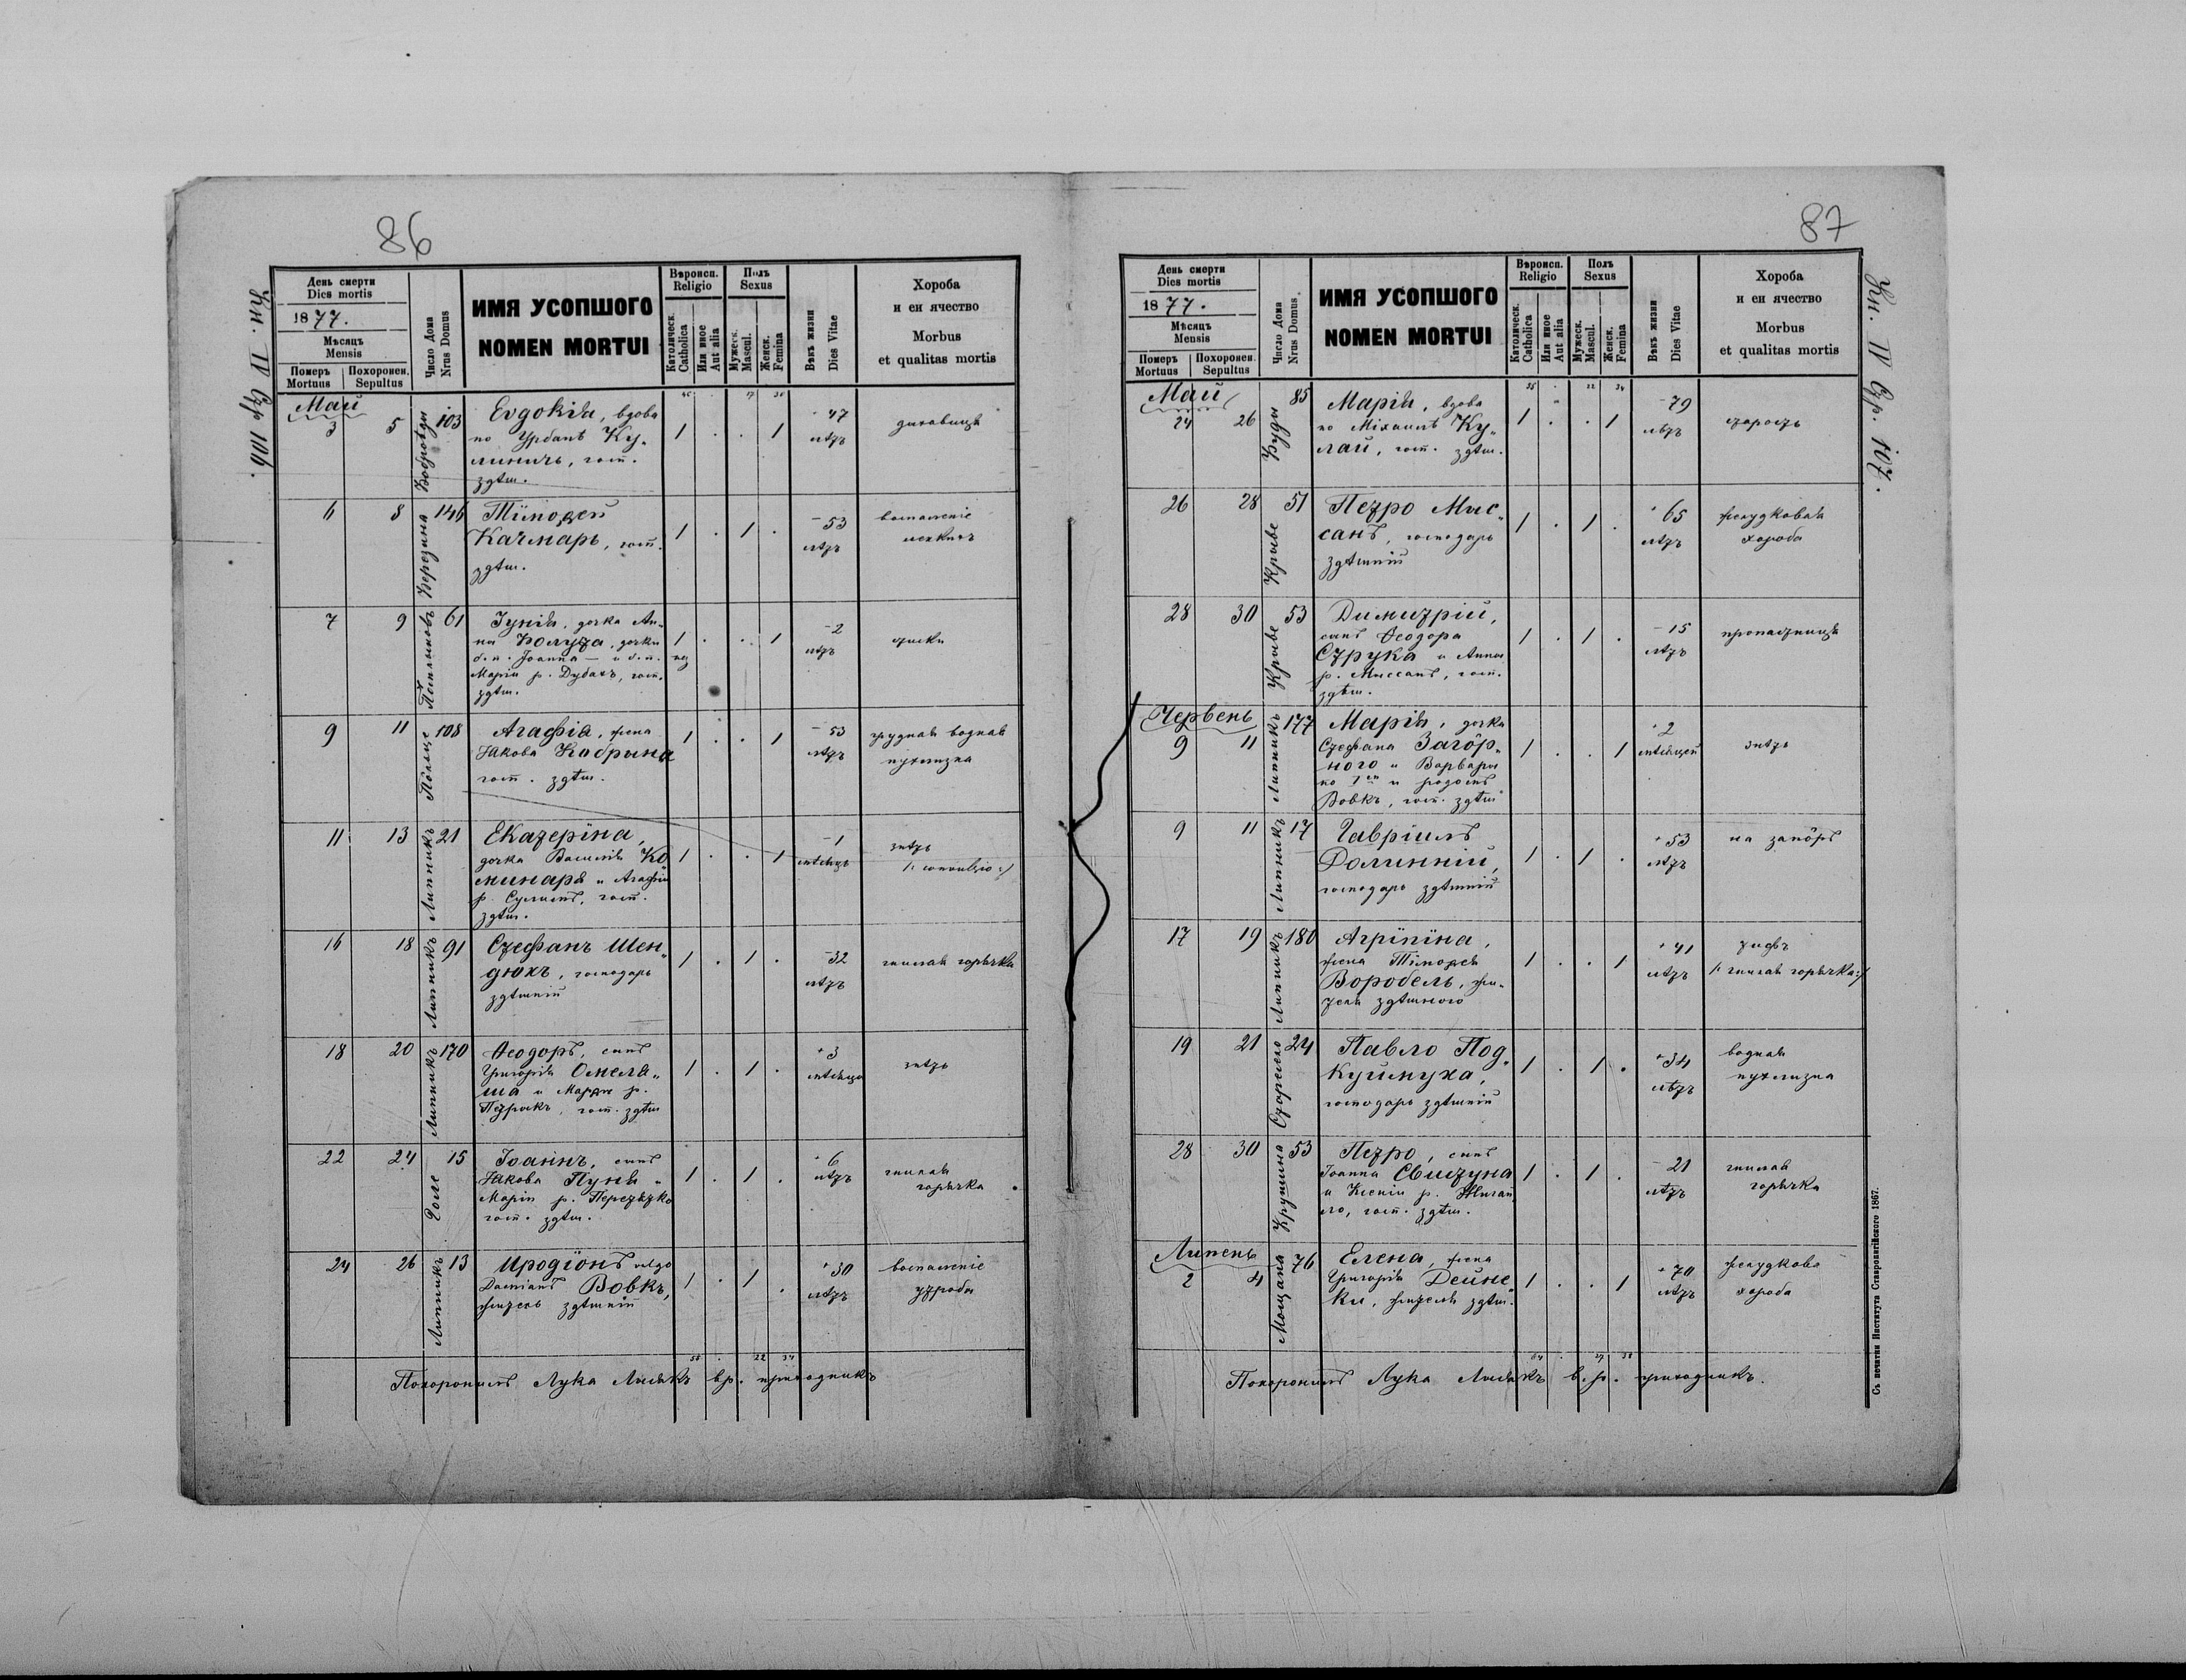 86
Кн. IV Стр. 106.
День смерти
Dies mortis
1877.
Мѣсяцъ
Mensis
Померъ
Mortuus
Похоронен.
Sepultus
Число Дома
Nrus Domus
ИМЯ УСОПШОГО
NOMEN MORTUI
Вѣроисп.
Religio
Католическ.
Catholica
Или иное
Aut alia
Полъ
Sexus
Мужеск.
Mascul.
Женск.
Femina
Вѣкъ жизни
Dies Vitae
Хороба
и еи ячество
Morbus
et qualitas mortis
Май
3 5 103
Евдокія, вдова
по Урбанѣ Ку„
линичъ, госп.
здѣш.
1 . . 1
47
лѣтъ
6 8 Березина 146
Тімоѳей
Качмаръ, госп.
здѣш.
1 . 1 .
53
лѣтъ
воспаленіе
легкихъ
7 9 61
дочка Ан„
ны дочки
б. п. Іоанна — и б. п.
Маріи р. Дубахъ, госп.
здѣш.
1 . . 1
2
лѣтъ
9 11 108
Агафія, жена
Якова Кобрына
госп. здѣш.
1 . . 1
53
лѣтъ
грудная водная
пухлизна
11 13 Липникъ 21
Екатеріна,
дочка Василія Ко
минаря и Агафіи
р. госп.
здѣш.
1 . . 1
1
мѣсяцъ
/: convulsio :/
16 18 Липникъ 91
Стефанъ Шен„
дюхъ, господарь
здѣшній
1 . 1 .
32
лѣтъ
гнилая горячка
18 20 Липникъ 170
Ѳеодоръ, сынъ
Григорія Омеля„
ша и Марѳы р.
Петрикъ, госп. здѣш
1 . 1 .
3
мѣсяца
22 24 15
Іоаннъ, сынъ
Якова Пуня и
Маріи р. Перетятко
госп. здѣш.
1 . 1 .
6
лѣтъ
гнилая
горячка
24 26 Липникъ 13
Иродіонъ vulgo
Даміанъ Вовкъ,
житель здѣшній
1 . 1 .
30
лѣтъ
воспаленіе
утробы
Похоронилъ Лука Лисякъ в. р. приходникъ
87
Кн. IV Стр. 107.
День смерти
Dies mortis
1877.
Мѣсяцъ
Mensis
Померъ
Mortuus
Похоронен.
Sepultus
Число Дома
Nrus Domus.
ИМЯ УСОПШОГО
NOMEN MORTUI
Вѣроисп.
Religio
Католическ.
Catholica
Или иное
Aut alia
Полъ
Sexus
Мужеск.
Mascul.
Женск.
Femina
Вѣкъ жизни
Dies Vitae
Хороба
и еи ячество
Morbus
et qualitas mortis
Май
24 26 Буды 85
Марія, вдова
по Міхаилѣ Ку„
лай, госп. здѣш.
1 . . 1
79
лѣтъ
старость
26 28 Кривe 51
Петро Мис„
санъ, господарь
здѣшній
1 . 1 .
65
лѣтъ
желудковая
хороба
28 30 Кривe 53
Димитрій,
сынъ Ѳеодора
Струка и Анны
р. Миссанъ, госп.
здѣш.
1 . 1 .
15
лѣтъ
пропастниця
Червень
9 11 Липникъ 177
Марія, дочка
Стефана Загôр„
ного и Варвары
родомъ
Вовкъ, госп. здѣш
1 . . 1
2
мѣсяцей
9 11 Липникъ 17
Гавріилъ
Долинній,
господарь здѣшній
1 . 1 .
53
лѣтъ
на запôръ
17 19 Липникъ 180
Агріпіна,
жена Тімоѳея
Воробель, жи„
теля здѣшного
1 . . 1
41
лѣтъ
тифъ
/: гнилая горячка :/
19 21 Старесело 24
Павло Под„
кушнуха,
господарь здѣшній
1 . 1 .
34
лѣтъ
водная
пухлизна
28 30 Крушина 53
Петро, сынъ
Іоанна Свистуна
и Ксеніи р.
госп. здѣш.
1 . 1 .
21
лѣтъ
гнилая
горячка
Липень
2 4 Мощана 76
Елена, жена
Григорія Дейне
ки, жителя здѣш.
1 . . 1
70
лѣтъ
желудкова
хороба
Похоронилъ Лука Лисякъ в. р. приходникъ.
Съ печатни Института Ставропигійского 1867.